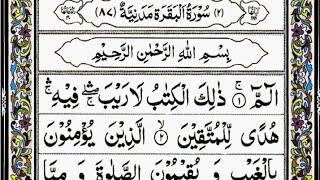 (٢) سُوْرَةُ الْبَقَرَةِ مَدَنِيَّةٌ (٨٧)
بِسْمِ اللّٰهِ الرَّحْمٰنِ الرَّحِيْمِ
الٓمّٓ ۚ﴿١﴾ ذٰلِكَ الْكِتٰبُ لَا رَيْبَ ۛۖ فِيْهِ ۛۚ
هُدًى لِّلْمُتَّقِيْنَ ۙ﴿٢﴾ الَّذِيْنَ يُؤْمِنُوْنَ
بِالْغَيْبِ وَ يُقِيْمُوْنَ الصَّلٰوةَ وَ مِمَّا